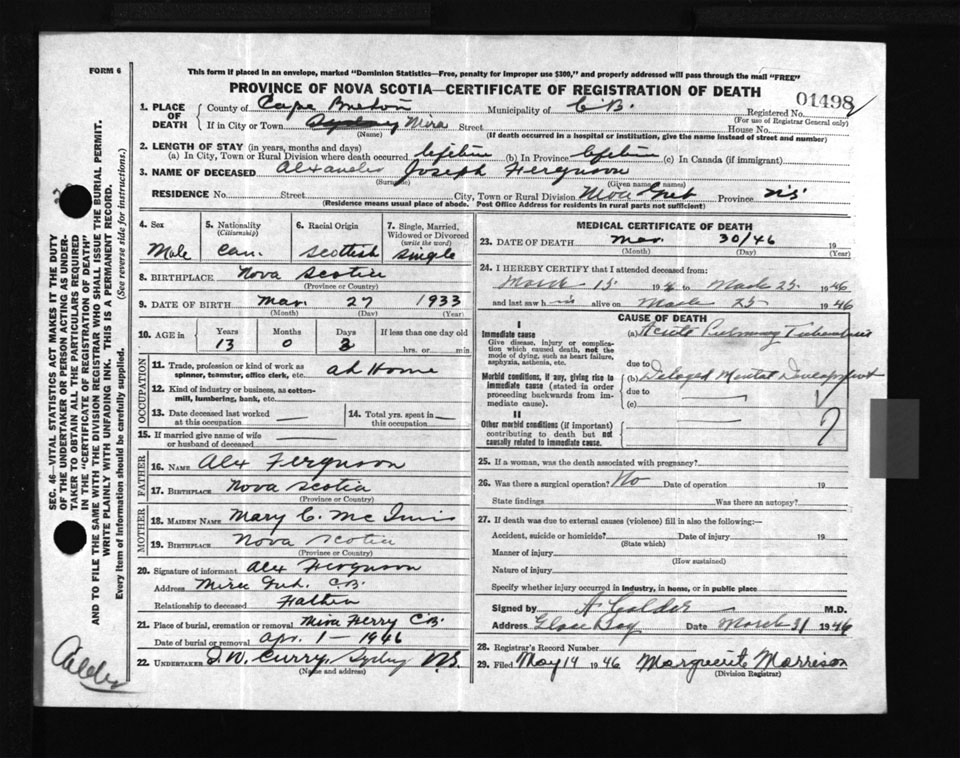 FORM 6
This form if placed in an envelope, marked "Dominion Statistics—Free, penalty for improper use $300," and properly addressed will pass through the mail "FREE"
PROVINCE OF NOVA SCOTIA—CERTIFICATE OF REGISTRATION OF DEATH
01498
1. PLACE OF DEATH
County of Cape Breton Municipality of C B. Registered No.
(For use of Registrar General only)
If in City or Town Sydney Mira Street House No.
(Name) (If death occurred in a hospital or institution, give the name instead of street and number)
2. LENGTH OF STAY (in years, months and days)
(a) In City, Town or Rural Division where death occurred lifetime (b) In Province lifetime (c) In Canada (if immigrant)
3. NAME OF DECEASED Alexander Joseph Ferguson
(Surname) (Given name or names)
RESIDENCE No. Street City, Town or Rural Division Mira Gut Province NS
(Residence means usual place of abode. Post Office Address for residents in rural parts not sufficient)
4. Sex Male
5. Nationality (Citizenship) Can.
6. Racial Origin Scottish
7. Single, Married, Widowed or Divorced (write the word) Single
8. BIRTHPLACE Nova Scotia
(Province or Country)
9. DATE OF BIRTH Mar 27 1933
(Month) (Day) (Year)
10. AGE in Years Months Days If less than one day old
13 0 3 hrs. or min.
OCCUPATION
11. Trade, profession or kind of work as spinner, teamster, office clerk, etc. at Home
12. Kind of industry or business, as cotton-mill, lumbering, bank, etc.
13. Date deceased last worked at this occupation
14. Total yrs. spent in this occupation
15. If married give name of wife or husband of deceased
FATHER
16. NAME Alex Ferguson
17. BIRTHPLACE Nova Scotia
(Province or Country)
MOTHER
18. MAIDEN NAME Mary C. Mc Innis
19. BIRTHPLACE Nova Scotia
(Province or Country)
20. Signature of informant Alex Ferguson
Address Mira Gut. C.B.
Relationship to deceased Father
21. Place of burial, cremation or removal Mira Ferry C B.
Date of burial or removal Apr. 1 - 1946
22. UNDERTAKER Curry, Sydney N.S.
(Name and address)
MEDICAL CERTIFICATE OF DEATH
23. DATE OF DEATH Mar. 30/46 19
(Month) (Day) (Year)
24. I HEREBY CERTIFY that I attended deceased from:
March 15 19 to March 25 1946
and last saw him alive on March 25 1946
CAUSE OF DEATH
I
Immediate cause
Give disease, injury or complication which caused death, not the mode of dying, such as heart failure, asphyxia, asthenia, etc.
(a) Acute Pulmonary Tuberculosis
due to
Morbid conditions, if any, giving rise to immediate cause (stated in order proceeding backwards from immediate cause).
(b) Delayed Mental Development
due to
(c)
II
Other morbid conditions (if important) contributing to death but not causally related to immediate cause.
25. If a woman, was the death associated with pregnancy?
26. Was there a surgical operation? No Date of operation 19
State findings Was there an autopsy?
27. If death was due to external causes (violence) fill in also the following:—
Accident, suicide or homicide? Date of injury 19
(State which)
Manner of injury
(How sustained)
Nature of injury
Specify whether injury occurred in industry, in home, or in public place
Signed by A Calder M.D.
Address Glace Bay Date March 31 1946
28. Registrar's Record Number
29. Filed May 14 1946 Marguerite Morrison
(Division Registrar)
SEC. 46—VITAL STATISTICS ACT MAKES IT THE DUTY
OF THE UNDERTAKER OR PERSON ACTING AS UNDERTAKER TO OBTAIN ALL THE PARTICULARS REQUIRED
IN THE "CERTIFICATE OF REGISTRATION OF DEATH"
AND TO FILE THE SAME WITH THE DIVISION REGISTRAR WHO SHALL ISSUE THE BURIAL PERMIT.
WRITE PLAINLY WITH UNFADING INK. THIS IS A PERMANENT RECORD.
Every item of information should be carefully supplied. (See reverse side for instructions.)